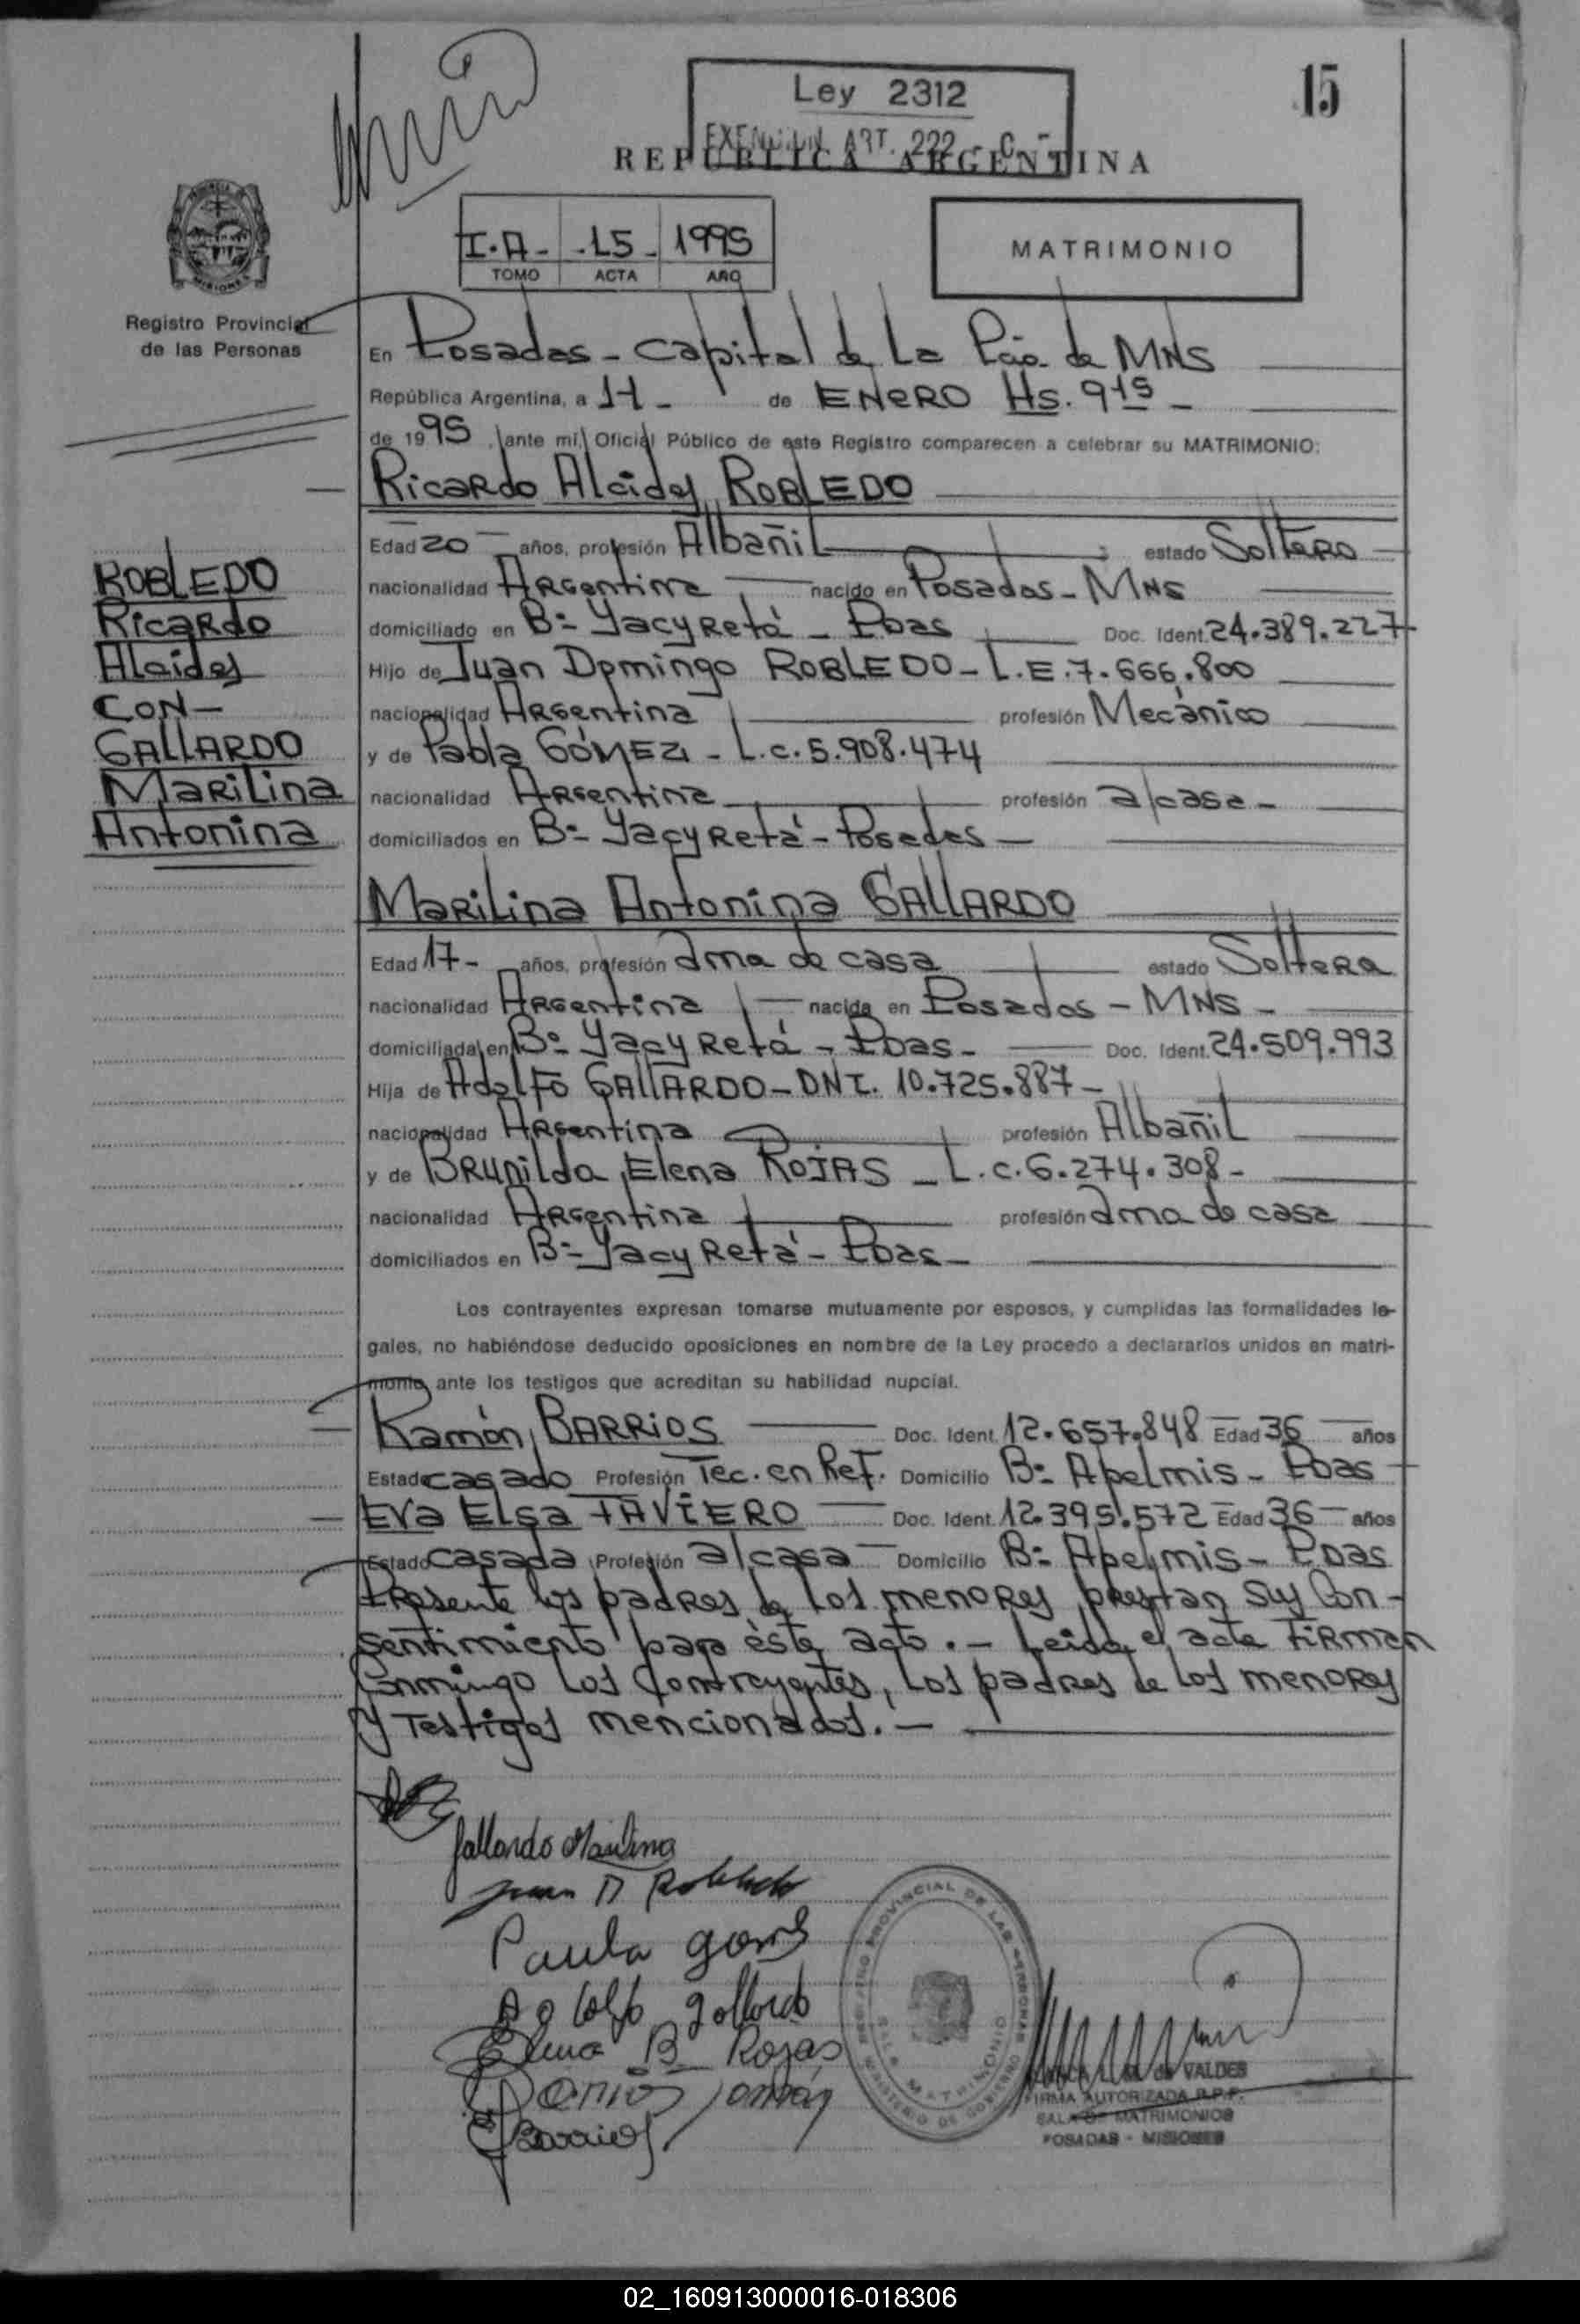 Ley 2312
15
EXENCION ART. 222 - C -
REPUBLICA ARGENTINA
I.A- 15- 1995
TOMO ACTA AÑO
MATRIMONIO
Registro Provincial
de las Personas
En Posadas - Capital de La Pcia. de MNS
República Argentina, a 11- de ENERO Hs. 9 15 -
de 1995, ante mi, Oficial Público de este Registro comparecen a celebrar su MATRIMONIO:
Ricardo Alcides ROBLEDO
Edad 20 - años, profesión Albañil estado Soltero
nacionalidad Argentina nacido en Posadas - MNS
domiciliado en Bº- Yacyretá - Pdas Doc. Ident. 24.389.227
Hijo de Juan Domingo ROBLEDO - L.E. 7.666.800
nacionalidad Argentina profesión Mecánico
y de Pabla GÓMEZ - L.C. 5.908.474
nacionalidad Argentina profesión a/casa -
domiciliados en Bº- Yacyretá - Posadas -
ROBLEDO
Ricardo
Alcides
CON -
GALLARDO
Marilina
Antonina
Marilina Antonina GALLARDO
Edad 17 - años, profesión ama de casa estado Soltera
nacionalidad Argentina nacida en Posadas - MNS -
domiciliada en Bº- Yacyretá - Pdas - Doc. Ident. 24.509.993
Hija de Adolfo GALLARDO - DNI. 10.725.887 -
nacionalidad Argentina profesión Albañil
y de Brunilda Elena ROJAS - L.C. 6.274.308 -
nacionalidad Argentina profesión ama de casa
domiciliados en Bº- Yacyretá - Pdas -
Los contrayentes expresan tomarse mutuamente por esposos, y cumplidas las formalidades le-
gales, no habiéndose deducido oposiciones en nombre de la Ley procedo a declararlos unidos en matri-
monio, ante los testigos que acreditan su habilidad nupcial.
Ramón BARRIOS Doc. Ident. 12.657.848 Edad 36 años
Estado casado Profesión Tec. en Ref. Domicilio Bº- Apelmis - Pdas
Eva Elsa TAVIERO Doc. Ident. 12.395.572 Edad 36 años
Estado casada Profesión a/casa Domicilio Bº- Apelmis - Pdas
Presente los padres de los menores prestan sus Con-
sentimiento para éste acto. - Leida el acta Firman
Conmingo los Contrayentes, los padres de los menores
y Testigos mencionados. -
Gallardo Marilina
Juan D Robledo
Paula gome
Adolfo gallardo
Elena B Rojas
Barrios
REGISTRO PROVINCIAL DE LAS PERSONAS
SALA MATRIMONIO
MINISTERIO DE GOBIERNO
de VALDES
FIRMA AUTORIZADA R.P.P.
SALA DE MATRIMONIOS
POSADAS - MISIONES
02_160913000016-018306